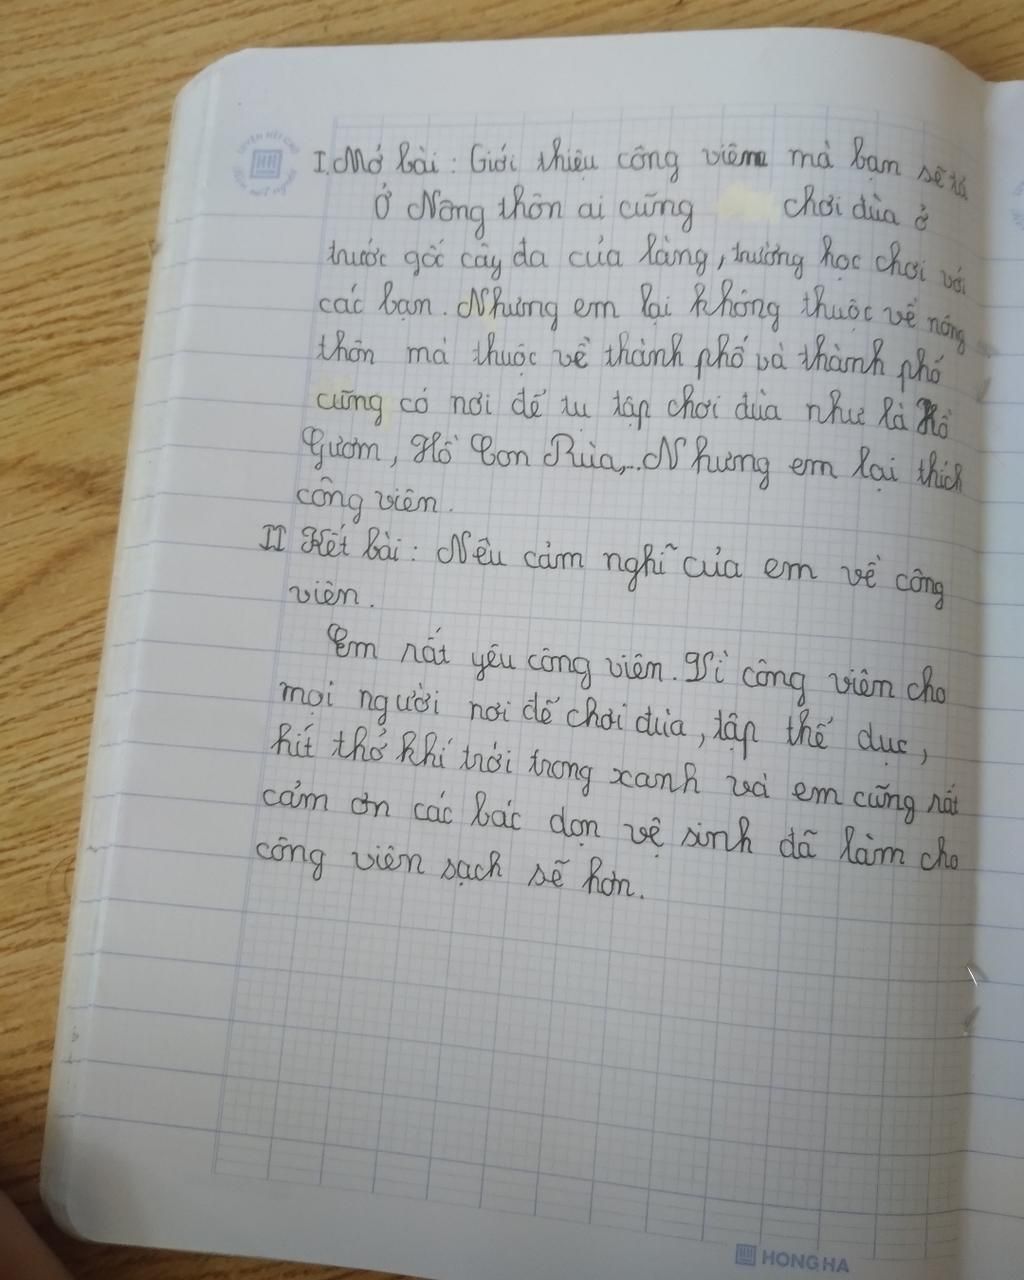 I. Mở bài: Giới thiệu công viên mà bạn sẽ tả
Ở Nông thôn ai cũng chơi đùa ở
trước gốc cây đa của làng, trường học chơi với
các bạn. Nhưng em lại không thuộc về nông
thôn mà thuộc về thành phố và thành phố
cũng có nơi để tụ tập chơi đùa như là Hồ
Gươm, Hồ Con Rùa,... Nhưng em lại thích
công viên.
II Kết bài: Nêu cảm nghĩ của em về công
viên.
Em rất yêu công viên. Vì công viên cho
mọi người nơi để chơi đùa, tập thể dục,
hít thở khí trời trong xanh và em cũng rất
cảm ơn các bác dọn vệ sinh đã làm cho
công viên sạch sẽ hơn.
HONG HA